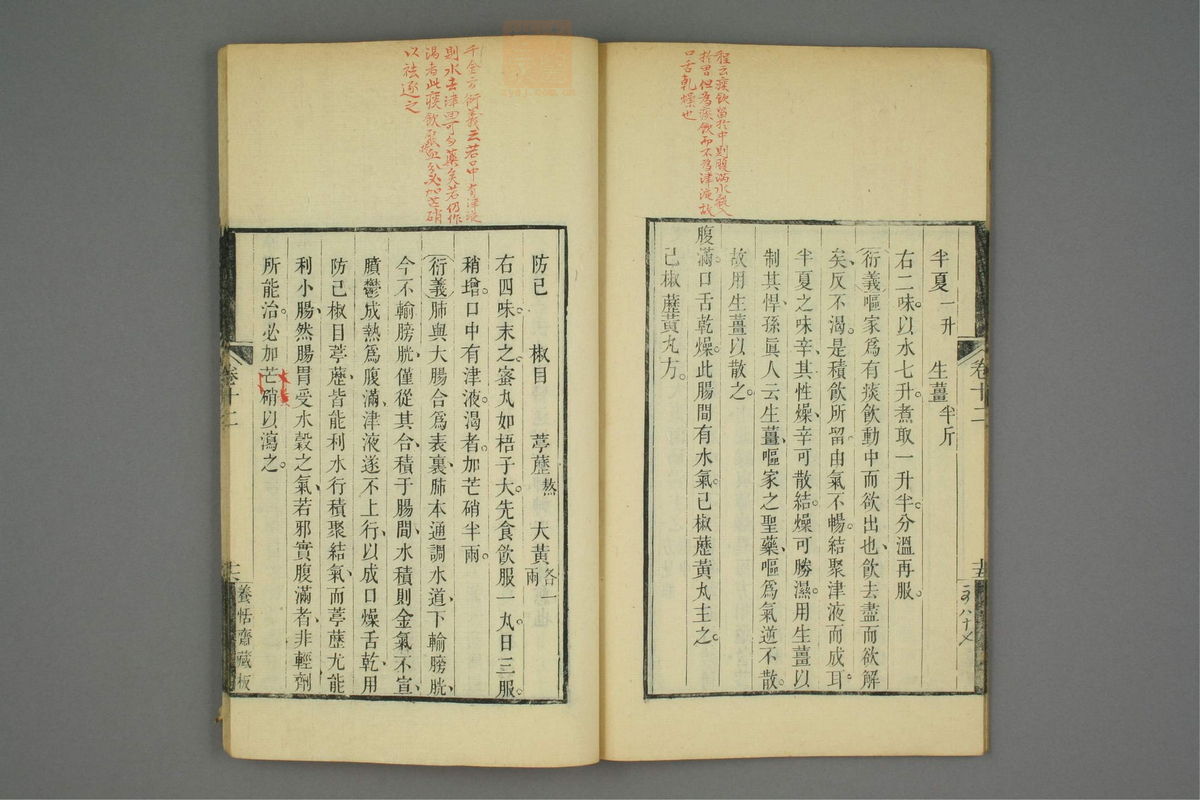 程云痰飲留於中則腹滿水氣入
於胃但爲痰飲而不爲津液故
口舌乾燥也
半夏一升　生薑半斤
右二味。以水七升。煮取一升半。分溫再服。
衍義嘔家爲有痰飲動中而欲出也、飲去盡而欲解
矣、反不渴。是積飲所留。由氣不暢。結聚津液而成耳。
半夏之味辛、其性燥、辛可散結。燥可勝濕。用生薑以
制其悍、孫眞人云生薑、嘔家之聖藥、嘔爲氣逆不散。
故用生薑以散之。
腹滿。口舌乾燥。此腸間有水氣。已椒藶黃丸主之。
己椒藶黃丸方。
卷十二
十五
千金方衍義云若口中有津液
則水去津回可勿藥矣若仍作
渴者此痰飲聚血分必加芒硝
以祛逐之
防已　椒目　葶藶熬　大黃各一兩
右四味。末之。蜜丸如梧子大。先食飲服一丸。日三服。
稍增。口中有津液。渴者。加芒硝半兩。
衍義肺與大腸合爲表裏、肺本通調水道、下輸膀胱、
今不輸膀胱、僅從其合、積于腸間、水積則金氣不宣、
膹鬱成熱爲腹滿、津液遂不上行、以成口燥舌乾、用
防己椒目葶藶、皆能利水行積聚結氣、而葶藶尤能
利小腸、然腸胃受水穀之氣、若邪實腹滿者、非輕劑
所能治。必加芒硝以瀉之。
大黃
卷十二
十六
養恬齋藏板